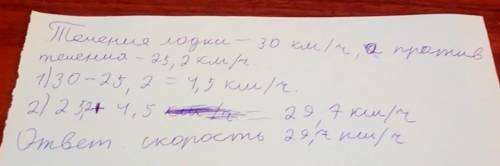 Течения лодки - 30 км/ч, а против
течения - 25,2 км/ч.
1) 30 - 25,2 = 4,5 км/ч.
2) 25,2+ 4,5 = 29,7 км/ч
Ответ скорость 29,7 км/ч